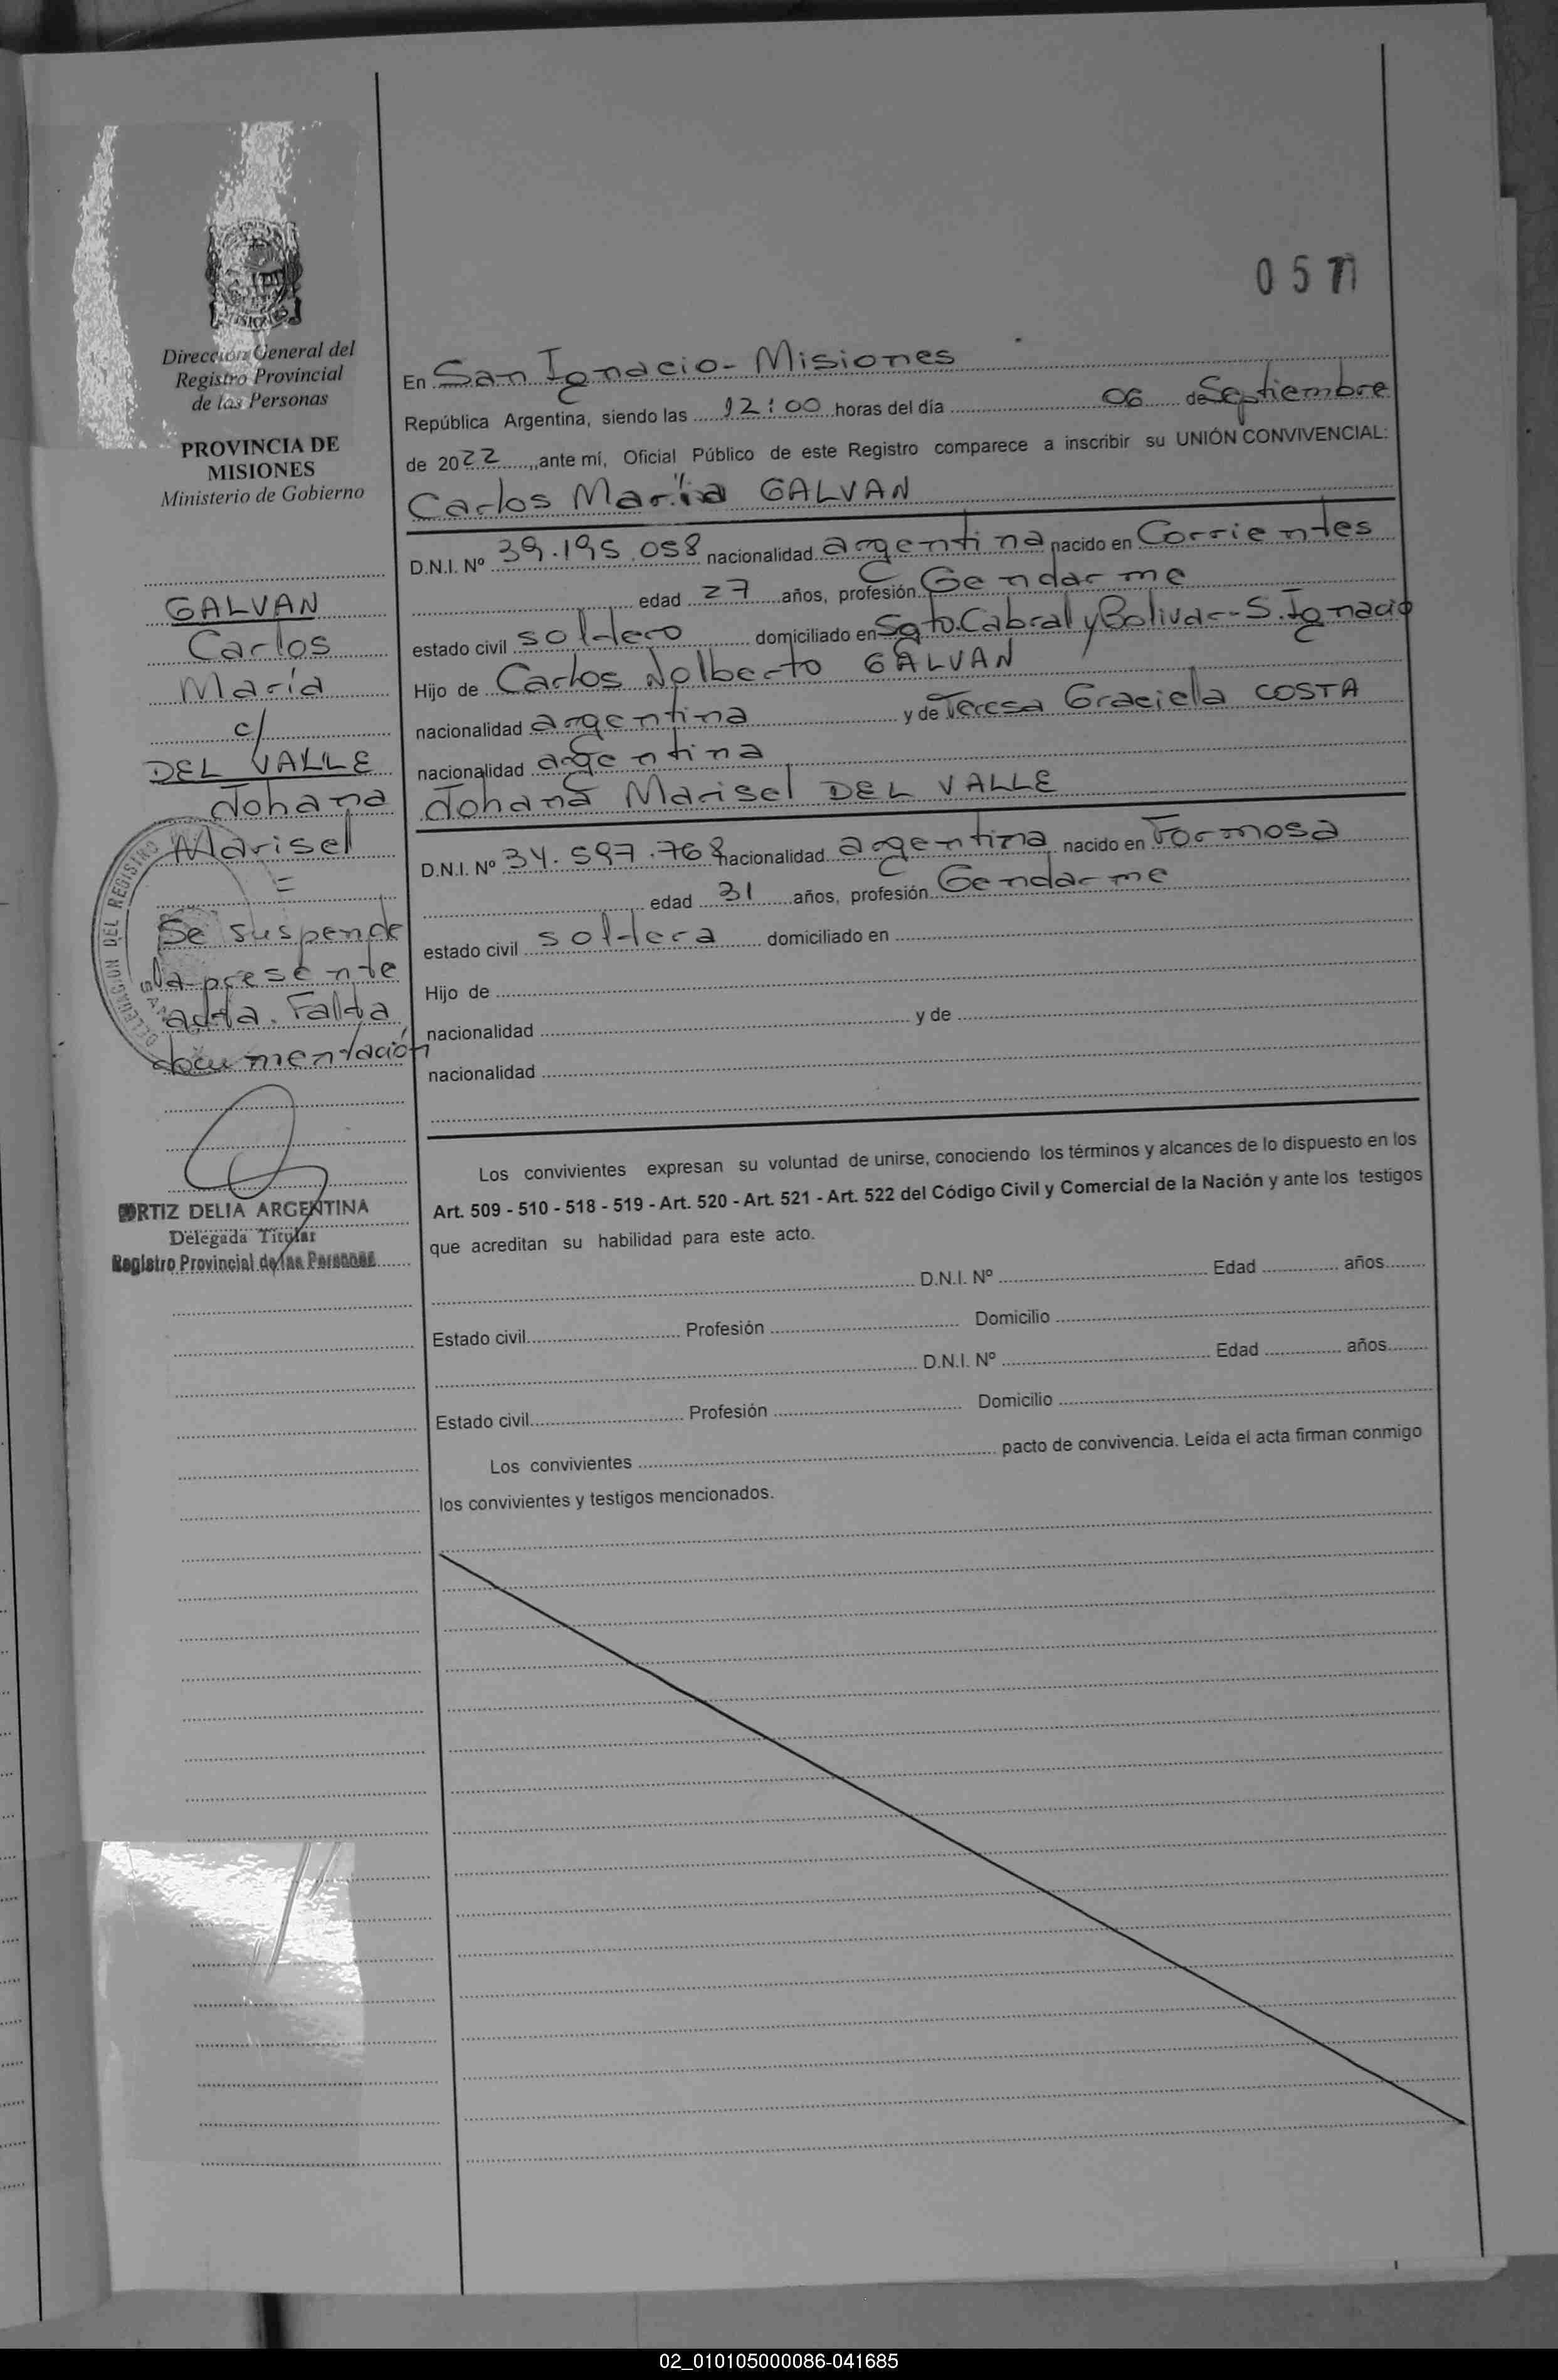 Dirección General del
Registro Provincial
de las Personas
PROVINCIA DE
MISIONES
Ministerio de Gobierno
GALVAN
Carlos
María
c/
DEL VALLE
Johana
Marisel
=
Se suspende
la presente
acta. Falta
documentación
ORTIZ DELIA ARGENTINA
Delegada Titular
Registro Provincial de las Personas
DELEGACION DEL REGISTRO
057
En San Ignacio - Misiones
República Argentina, siendo las 12:00 horas del día 06 de Septiembre
de 2022, ante mí, Oficial Público de este Registro comparece a inscribir su UNIÓN CONVIVENCIAL:
Carlos María GALVAN
D.N.I. Nº 39.195.058 nacionalidad argentina nacido en Corrientes
edad 27 años, profesión Gendarme
estado civil soltero domiciliado en Sgto. Cabral y Bolivar - S. Ignacio
Hijo de Carlos Nolberto GALVAN
nacionalidad argentina y de Teresa Graciela COSTA
nacionalidad argentina
Johana Marisel DEL VALLE
D.N.I. Nº 34.597.768 nacionalidad argentina nacido en Formosa
edad 31 años, profesión Gendarme
estado civil soltera domiciliado en
Hijo de
nacionalidad y de
nacionalidad
Los convivientes expresan su voluntad de unirse, conociendo los términos y alcances de lo dispuesto en los
Art. 509 - 510 - 518 - 519 - Art. 520 - Art. 521 - Art. 522 del Código Civil y Comercial de la Nación y ante los testigos
que acreditan su habilidad para este acto.
D.N.I. Nº Edad años
Estado civil Profesión Domicilio
D.N.I. Nº Edad años
Estado civil Profesión Domicilio
Los convivientes pacto de convivencia. Leída el acta firman conmigo
los convivientes y testigos mencionados.
02_010105000086-041685